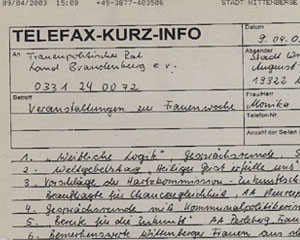 09/04/2003 15:08 +49-3877-403506 STADT WITTENBERGE
TELEFAX-KURZ-INFO
Datum
9.04.0
An
Frauenpolitischer Rat
Land Brandenburg e.v.
0331 24 00 72
Absender
Stadt
August
19322
Betreff
Veranstaltungen zur Frauenwoche
Frau/Herr
Monika
Telefon-Nr.
Anzahl der Seiten
1. "Weibliche Logik" Gesprächsrunde
2. Weltgebetstag "Heiliger Geist erfülle uns
3. Vorschläge der Hartzkommission
Beauftragte für Chancengleichheit AA
4. Gesprächsrunde mit Kommunalpolitikerin
5. "Berufe für die Zukunft" AA Perleberg
6. Bemerkenswerte Wittenberger Frauen aus